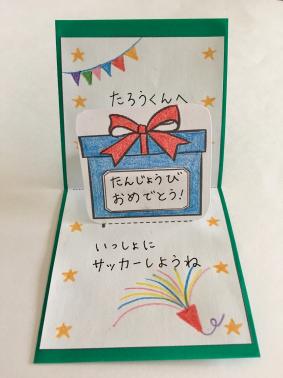 たろうくんへ
たんじょうび
おめでとう!
いっしょに
サッカーしようね